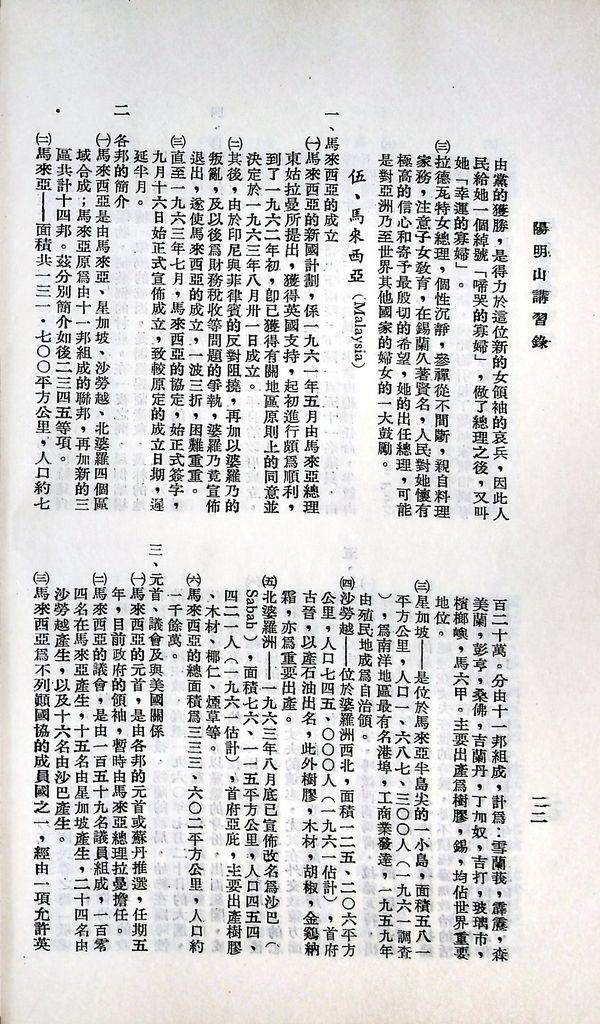 陽明山講習錄
一二二
由黨的獲勝，是得力於這位新的女領袖的哀兵，因此人
民給她一個綽號「啼哭的寡婦」，做了總理之後，又叫
她「幸運的寡婦」。
㈢拉德瓦特女總理，個性沉靜，參禪從不間斷，親自料理
家務，注意子女敎育，在錫蘭久著賢名，人民對她懷有
極高的信心和寄予最殷切的希望，她的出任總理，可能
是對亞洲乃至世界其他國家的婦女的一大鼓勵。
伍、馬來西亞（Malaysia）
一、馬來西亞的成立
㈠馬來西亞的新國計劃，係一九六一年五月由馬來亞總理
東姑拉曼所提出，獲得英國支持，起初進行頗爲順利，
到了一九六二年初，卽已獲得有關地區原則上的同意並
決定於一九六三年八月卅一日成立。
㈡其後，由於印尼與菲律賓的反對阻撓，再加以婆羅乃的
叛亂，及以後爲財務稅收等問題的爭執，婆羅乃竟宣佈
退出，遂使馬來西亞的成立，一波三折，困難重重。
㈢直至一九六三年七月，馬來西亞的協定，始正式簽字，
九月十六日始正式宣佈成立，致較原定的成立日期，遲
延半月。
二　各邦的簡介
㈠馬來西亞是由馬來亞、星加坡、沙勞越、北婆羅四個區
域合成；馬來亞原爲由十一邦組成的聯邦，再加新的三
區共計十四邦。茲分別簡介如後二三四五等項。
㈡馬來亞——面積共一三一·七〇〇平方公里，人口約七
百二十萬。分由十一邦組成，計爲：雪蘭莪，霹靂，森
美蘭，彭亨，桑佛，吉蘭丹，丁加奴，吉打，玻璃市，
檳榔嶼，馬六甲。主要出產爲樹膠，錫，均佔世界重要
地位。
㈢星加坡——是位於馬來亞半島尖的一小島，面積五八一
平方公里，人口一、六八七、三〇〇人（一九六一調查
），爲南洋地區最有名港埠，工商業發達，一九五九年
由殖民地成爲自治領。
㈣沙勞越——位於婆羅洲西北，面積一二五、二〇六平方
公里，人口七四五、〇〇〇人（一九六一估計），首府
古晉，以產石油出名，此外樹膠，木材，胡椒，金鷄納
霜，亦爲重要出產。
㈤北婆羅洲——一九六三年八月底已宣佈改名爲沙巴（
Sabah），面積七六、一一五平方公里，人口四五四、
四二一人（一九六一估計），首府亞庇，主要出產樹膠
、木材、椰仁、煙草等。
㈥馬來西亞的總面積爲三三三、六〇二平方公里，人口約
一千餘萬。
三、元首、議會及與美國關係
㈠馬來西亞的元首，是由各邦的元首或蘇丹推選，任期五
年，目前政府的領袖，暫時由馬來亞總理拉曼擔任。
㈡馬來西亞的議會，是由一百五十九名議員組成，一百零
四名在馬來亞產生，十五名由星加坡產生，二十四名由
沙勞越產生，以及十六名由沙巴產生。
㈢馬來西亞爲不列顛國協的成員國之一，經由一項允許英